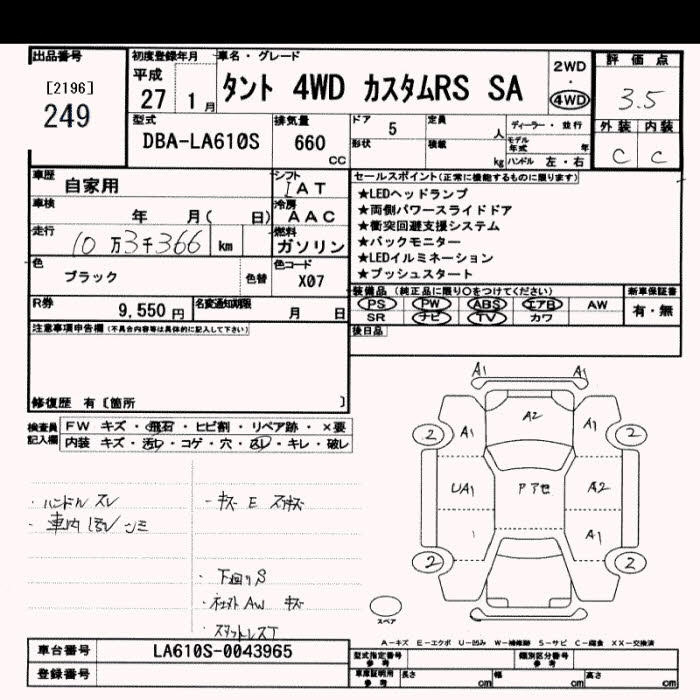 出品番号
[2196]
249
初度登録年月
平成
27 1月
車名・グレード
タント 4WD カスタムRS SA
2WD
・
4WD
評価点
3.5
外装 内装
C C
型式
DBA-LA610S
排気量
660
cc
ドア
5
定員
人
形状
積載
kg
ディーラー・並行
モデル年式 年
ハンドル 左・右
車歴
自家用
シフト
IAT
車検
年 月( 日)
冷房
AAC
走行
10万3千366 km
燃料
ガソリン
色
ブラック
色替
色コード
X07
R券
9,550円
名変通知期限
月 日
セールスポイント(正常に機能するものに限ります)
★LEDヘッドランプ
★両側パワースライドドア
★衝突回避支援システム
★バックモニター
★LEDイルミネーション
★プッシュスタート
装備品(純正品に限り○をつけてください)
PS PW ABS エアB AW
SR ナビ TV カワ
新車保証書
有・無
後日品
注意事項申告欄(不具合内容等は具体的に記入して下さい)
修復歴 有〔箇所 〕
検査員記入欄
FW キズ・飛石・ヒビ割・リペア跡・×要
内装 キズ・汚レ・コゲ・穴・スレ・キレ・破レ
・ハンドル スレ
・車内
・キズ E
・下回りS
AW キズ
A1 A1
A2
2 A1 A1 2
UA1 A2
A1
2 2
スペア
A-キズ E-エクボ U-凹み W-補修跡 S-サビ C-腐食 XX-交換済
車台番号
LA610S-0043965
登録番号
型式指定番号
参考
類別区分番号
参考
車庫証明用
参考
長さ cm
幅 cm
高さ cm